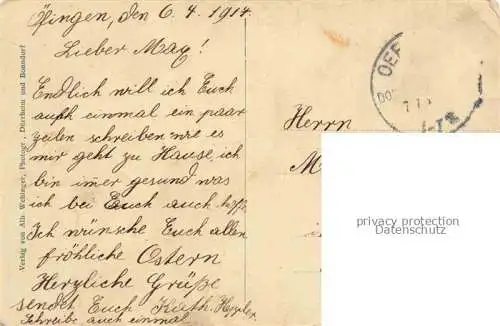 Öfingen, den 6. 4. 1914.
Lieber Max!
Endlich will ich Euch
auch einmal ein paar
zeilen schreiben wie es
mir geht zu Hause, ich
bin imer gesund was
ich bei Euch auch hoffe.
Ich wünsche Euch allen
fröhliche Ostern
Herzliche Grüße
sendet Euch Kath.
Schreibe auch einmal
Verlag von Alb. Wehinger, Photogr., Dürrheim und Bonndorf
OEF
DO
7
Herrn
M
privacy protection
Datenschutz